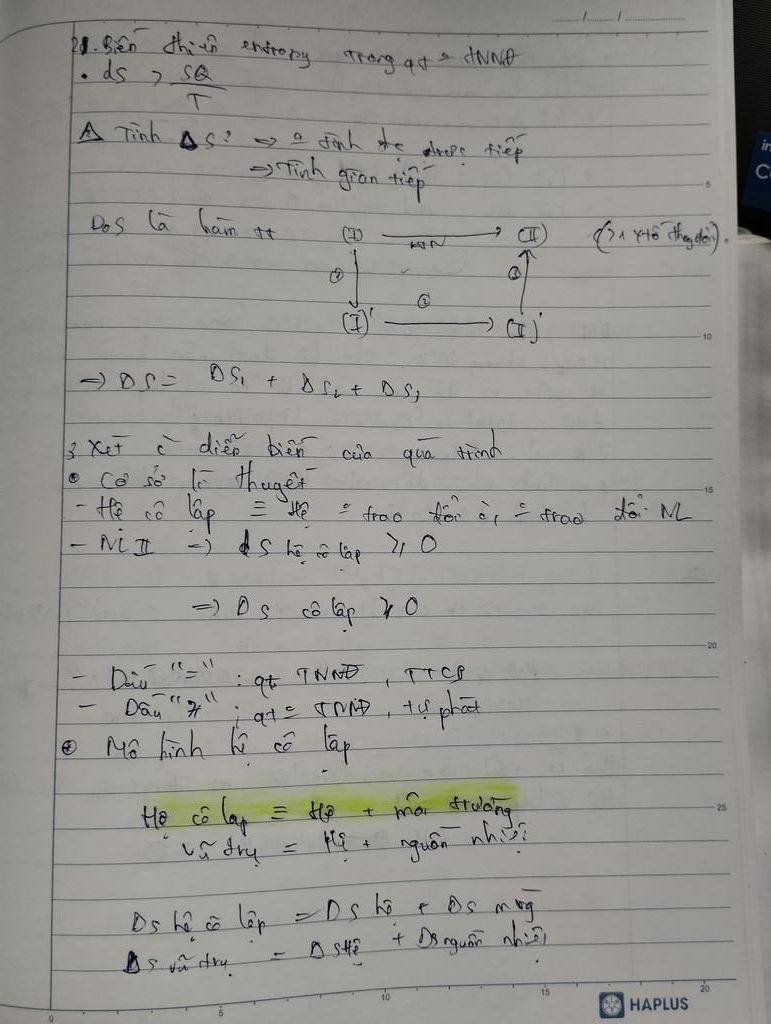 21. Biến thiên entropy trong qt ≗ TNNĐ
• dS > δQ
T
Tính ΔS: => ≗ tính trực tiếp
=> Tính gián tiếp
Do S là hàm tt (I) (II)
① ③
②
(I)' (II)'
=> ΔS = ΔS₁ + ΔS₂ + ΔS₃
3 Xét c̀ diễn biến của quá trình
• Cơ sở lí thuyết
- Hệ cô lập ≡ Hệ ≗ trao đổi c̀, ≗ trao đổi NL
- NL II => dS hệ cô lập ≥ 0
=> ΔS cô lập ≥ 0
- Dấu "=" : qt TNNĐ, TTCB
- Dấu "≠" ; qt ≗ TNNĐ, tự phát
Mô hình hệ cô lập
Hệ cô lập ≡ Hệ + môi trường
vũ trụ = Hệ + nguồn nhiệt
ΔS hệ cô lập = ΔS hệ + ΔS mtrg
ΔS vũ trụ = ΔS Hệ + ΔS nguồn nhiệt
5
10
15
20
25
0 5 10 15 20
HAPLUS